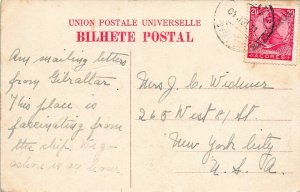 UNION POSTALE UNIVERSELLE
BILHETE POSTAL
20 20
AÇORES
Am mailing letters
from Gibraltar.
This place is
fascinating from
the ship. We go
ashore in an hour.
Mrs J. C. Widener
265 West 81st St.
New York City
U. S. A.